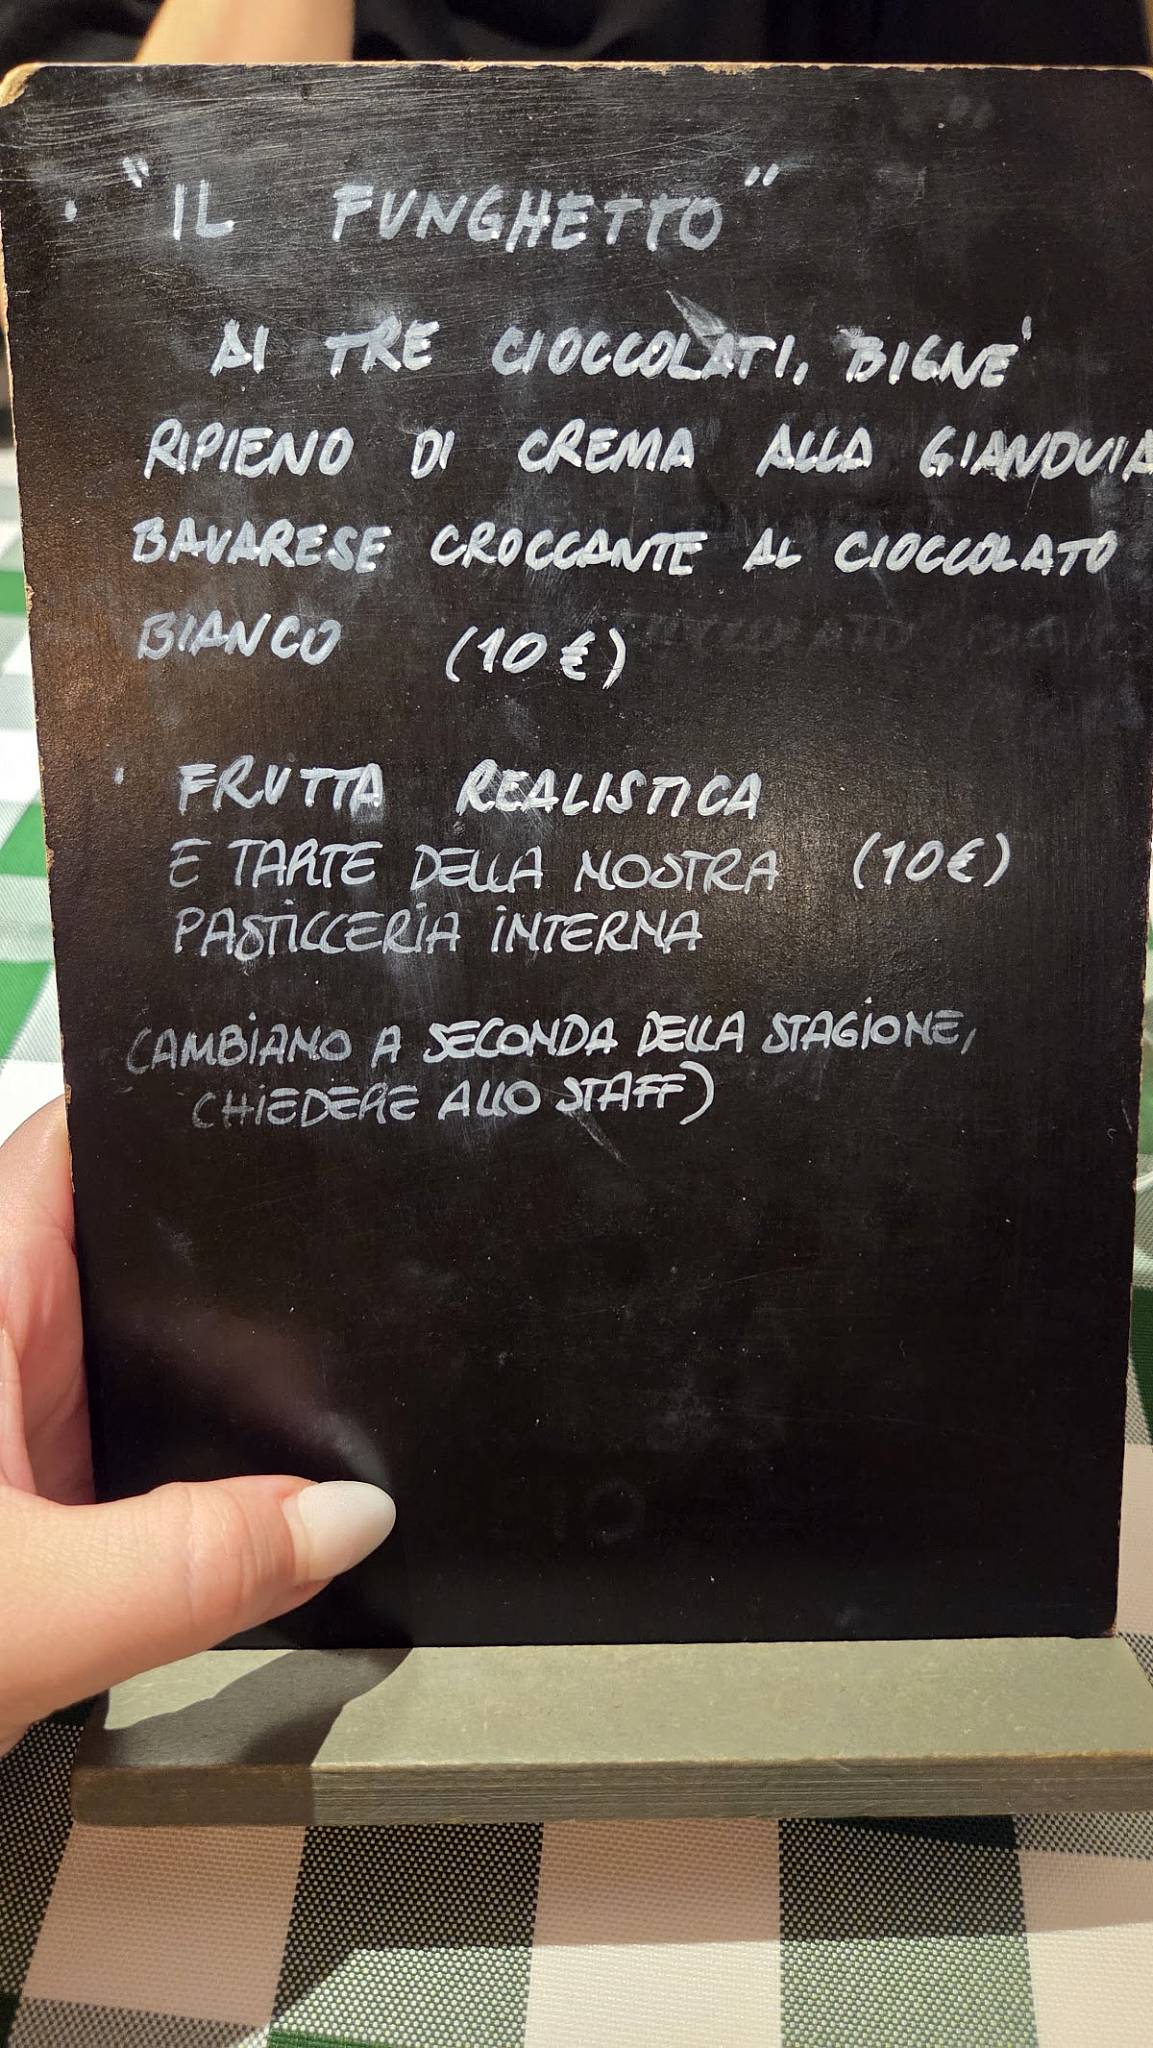 · "IL FUNGHETTO"
AI TRE CIOCCOLATI, BIGNE'
RIPIENO DI CREMA ALLA GIANDUIA
BAVARESE CROCCANTE AL CIOCCOLATO
BIANCO (10€)
· FRUTTA REALISTICA
E TARTE DELLA NOSTRA (10€)
PASTICCERIA INTERNA
(CAMBIANO A SECONDA DELLA STAGIONE,
CHIEDERE ALLO STAFF)